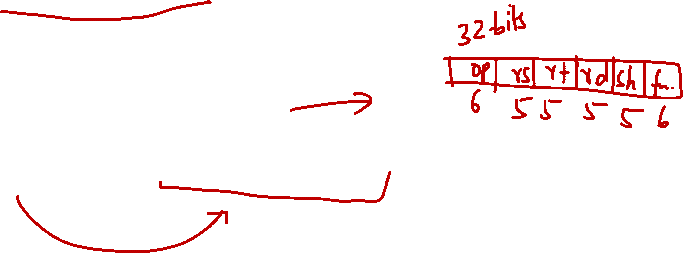 32 bits
op rs rt rd sh fn..
6 5 5 5 5 6